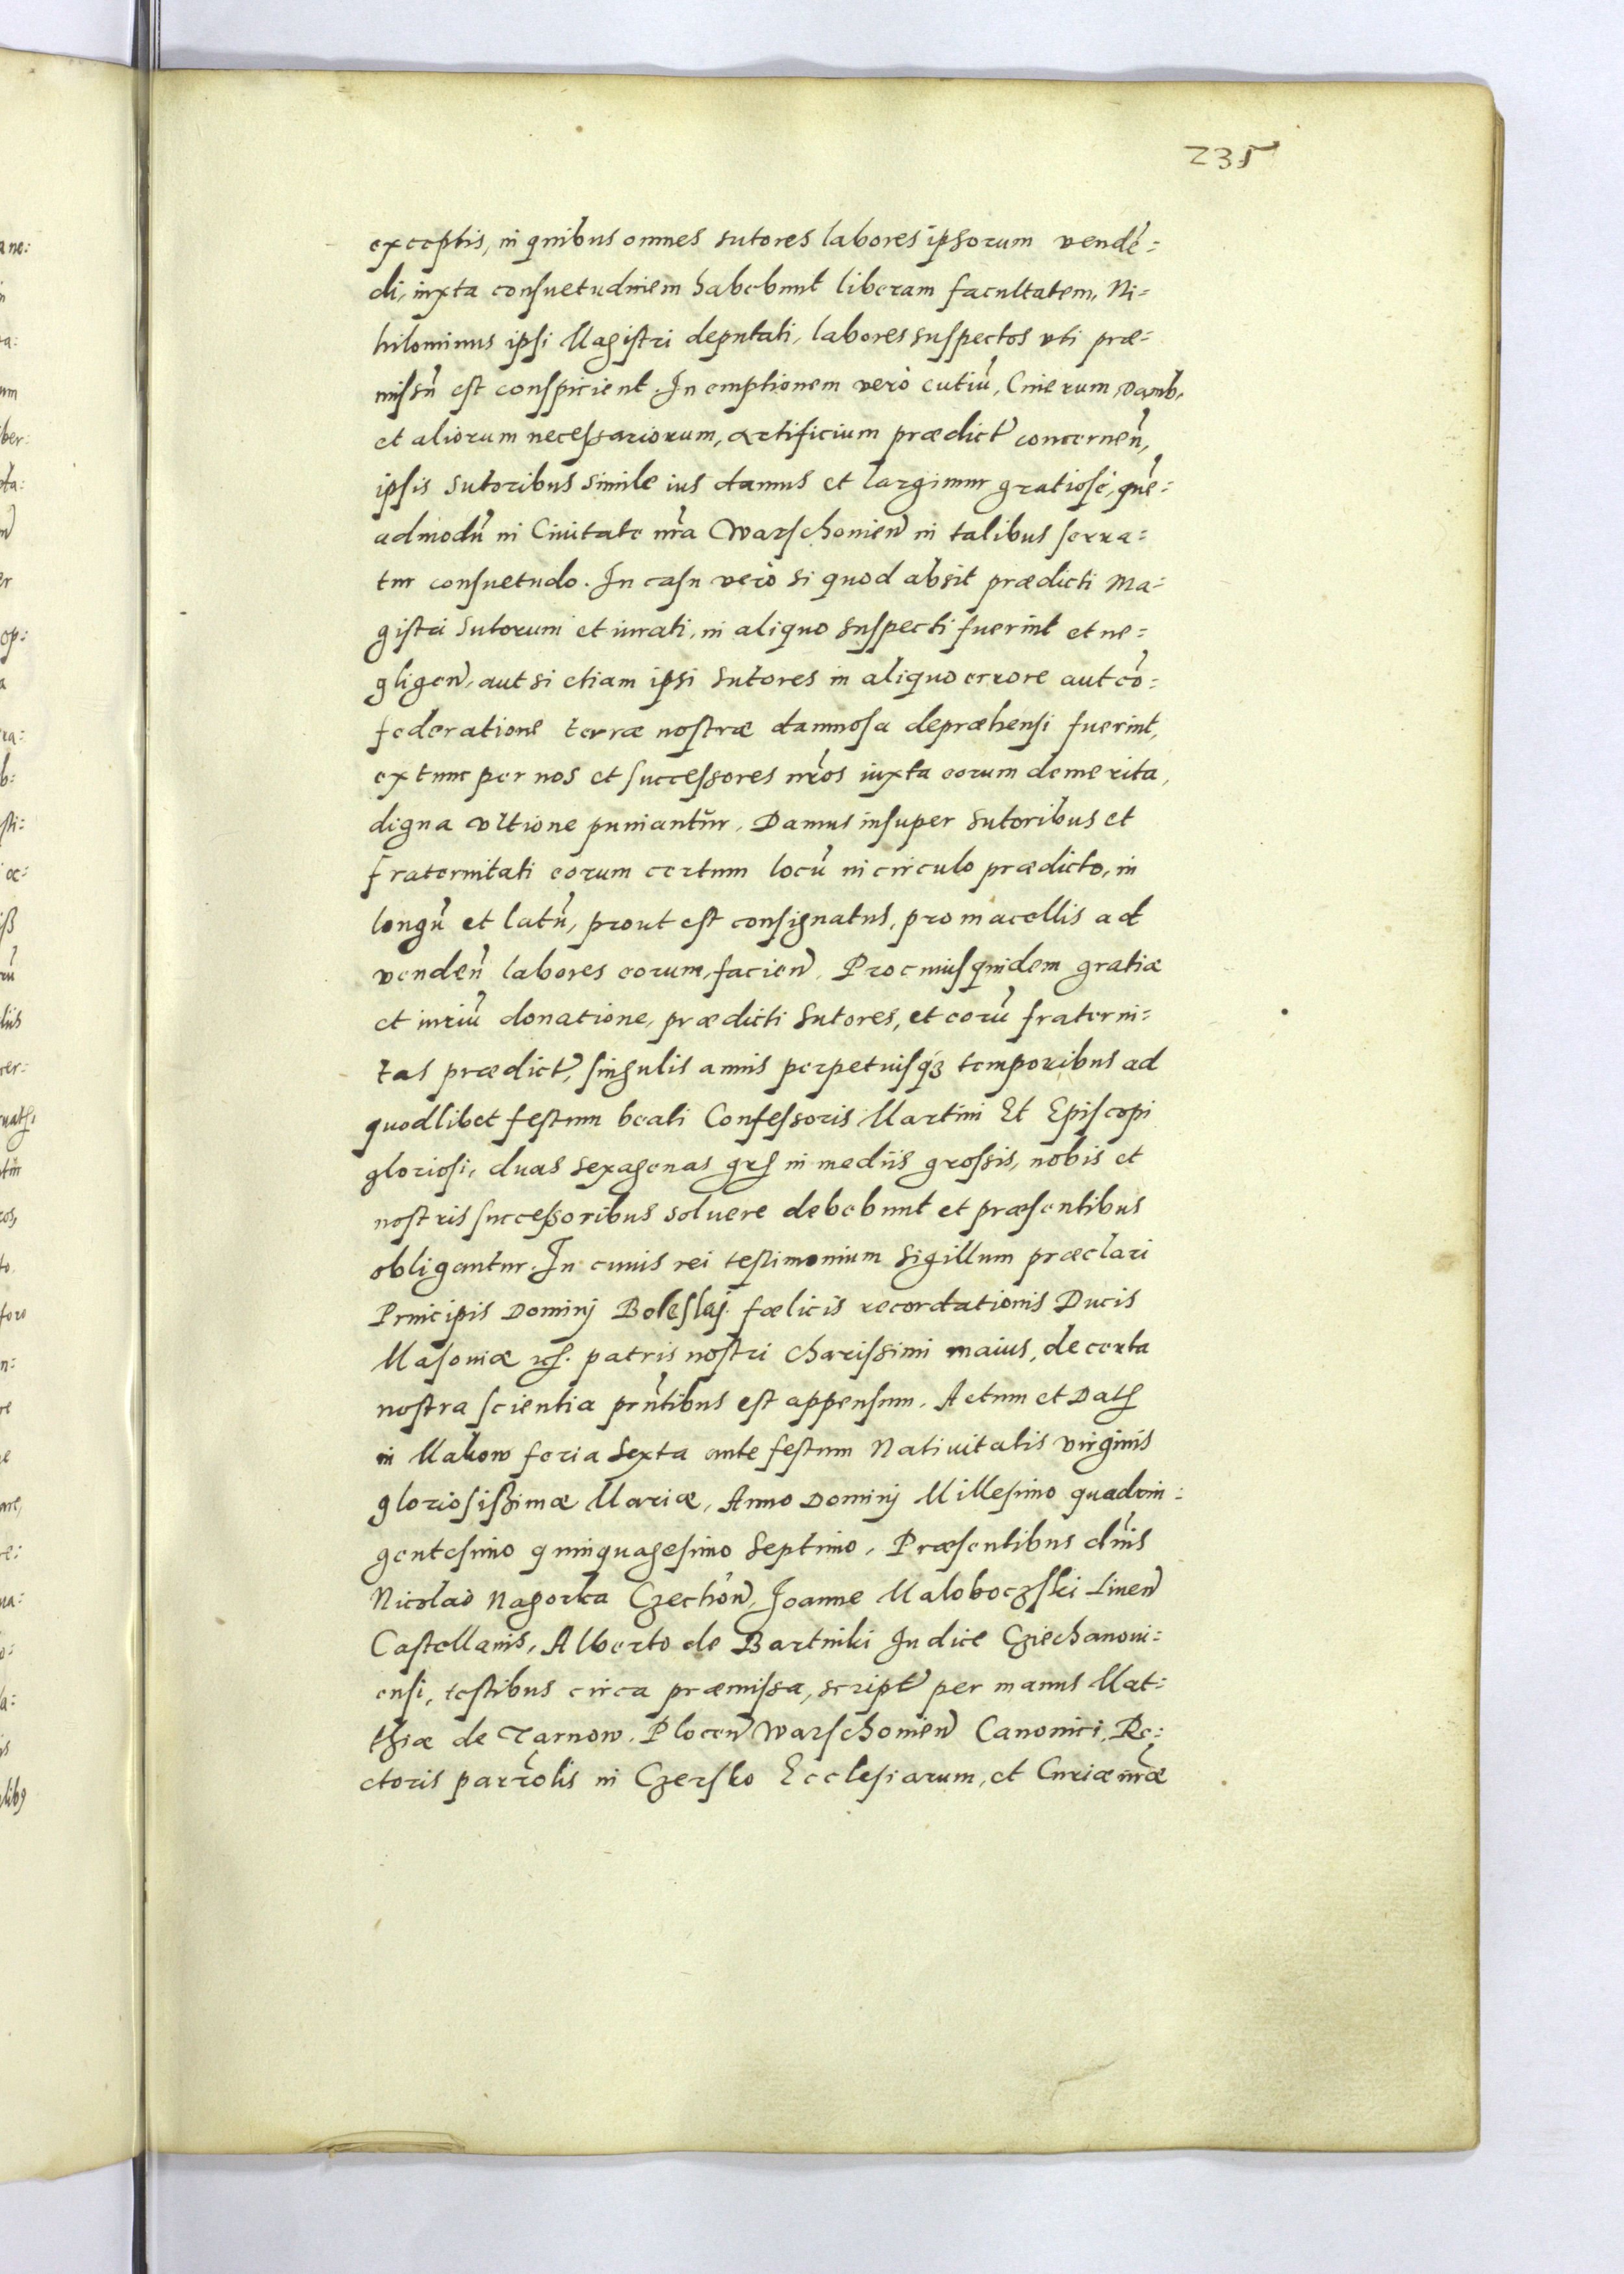 235
exceptis, in quibus omnes sutores labores ipsorum vendē=
di, iuxta consuetudinem habebunt liberam facultatem, Ni=
hilominus ipsi Magistri deputati, labores suspectos vti præ=
missū est conspicient. In emptionem verò cutiū, Cinerum, Damb,
et aliorum necessariorum, artificium prædict̃ concerneñ,
ipsis sutoribus simile ius damus et largimur gratiosè, quē=
admodū in Ciuitate nr̃a Warschouieñ in talibus serua=
tur consuetudo. In casu verò si quod absit prædicti Ma=
gistri Sutorum et iurati, in aliquo suspecti fuerint et ne=
gligeñ, aut si etiam ipsi Sutores in aliquo errore aut cō=
federatione terræ nostræ damnosa depræhensi fuerint,
extunc per nos et successores nr̃os iuxta eorum demerita,
digna vltione puniantur. Damus insuper Sutoribus et
fraternitati eorum certum locū in circulo prædicto, in
longū et latū, prout est consignatus, pro macellis ad
vendeñ labores eorum, facieñ. Pro cuius quidem gratiæ
et iuriū donatione, prædicti Sutores, et eorū fraterni=
tas prædict̃, singulis annis perpetuisq́₃ temporibus ad
quodlibet festum beati Confessoris Martini Et Episcopi
gloriosi, duas sexagenas grß in mediis grossis, nobis et
nostris successoribus soluere debebunt et præsentibus
obligantur. In cuius rei testimonium Sigillum præclari
Principis Dominj Boleslaj fœlicis recordationis Ducis
Masouiæ patris nostri charissimi maius, de certa
nostra scientia prñtibus est appensum. Actum et Datß
in Makow feria Sexta ante festum Natiuitatis virginis
gloriosißimæ Mariæ, Anno Dominj Millesimo quadrin=
gentesimo quinquagesimo Septimo, Præsentibus dñis
Nicolao Nagorka Czechoñ, Joanne Maloboczski Liueñ
Castellanis, Alberto de Bartniki Judice Cziechanoui=
ensi, testibus circa præmissa, script̃ per manus Mat=
thiæ de Tarnow, Ploceñ Warschouieñ Canonici, Re=
ctoris parr̃olis in Czersko Ecclesiarum, et Curiæ nr̃æ